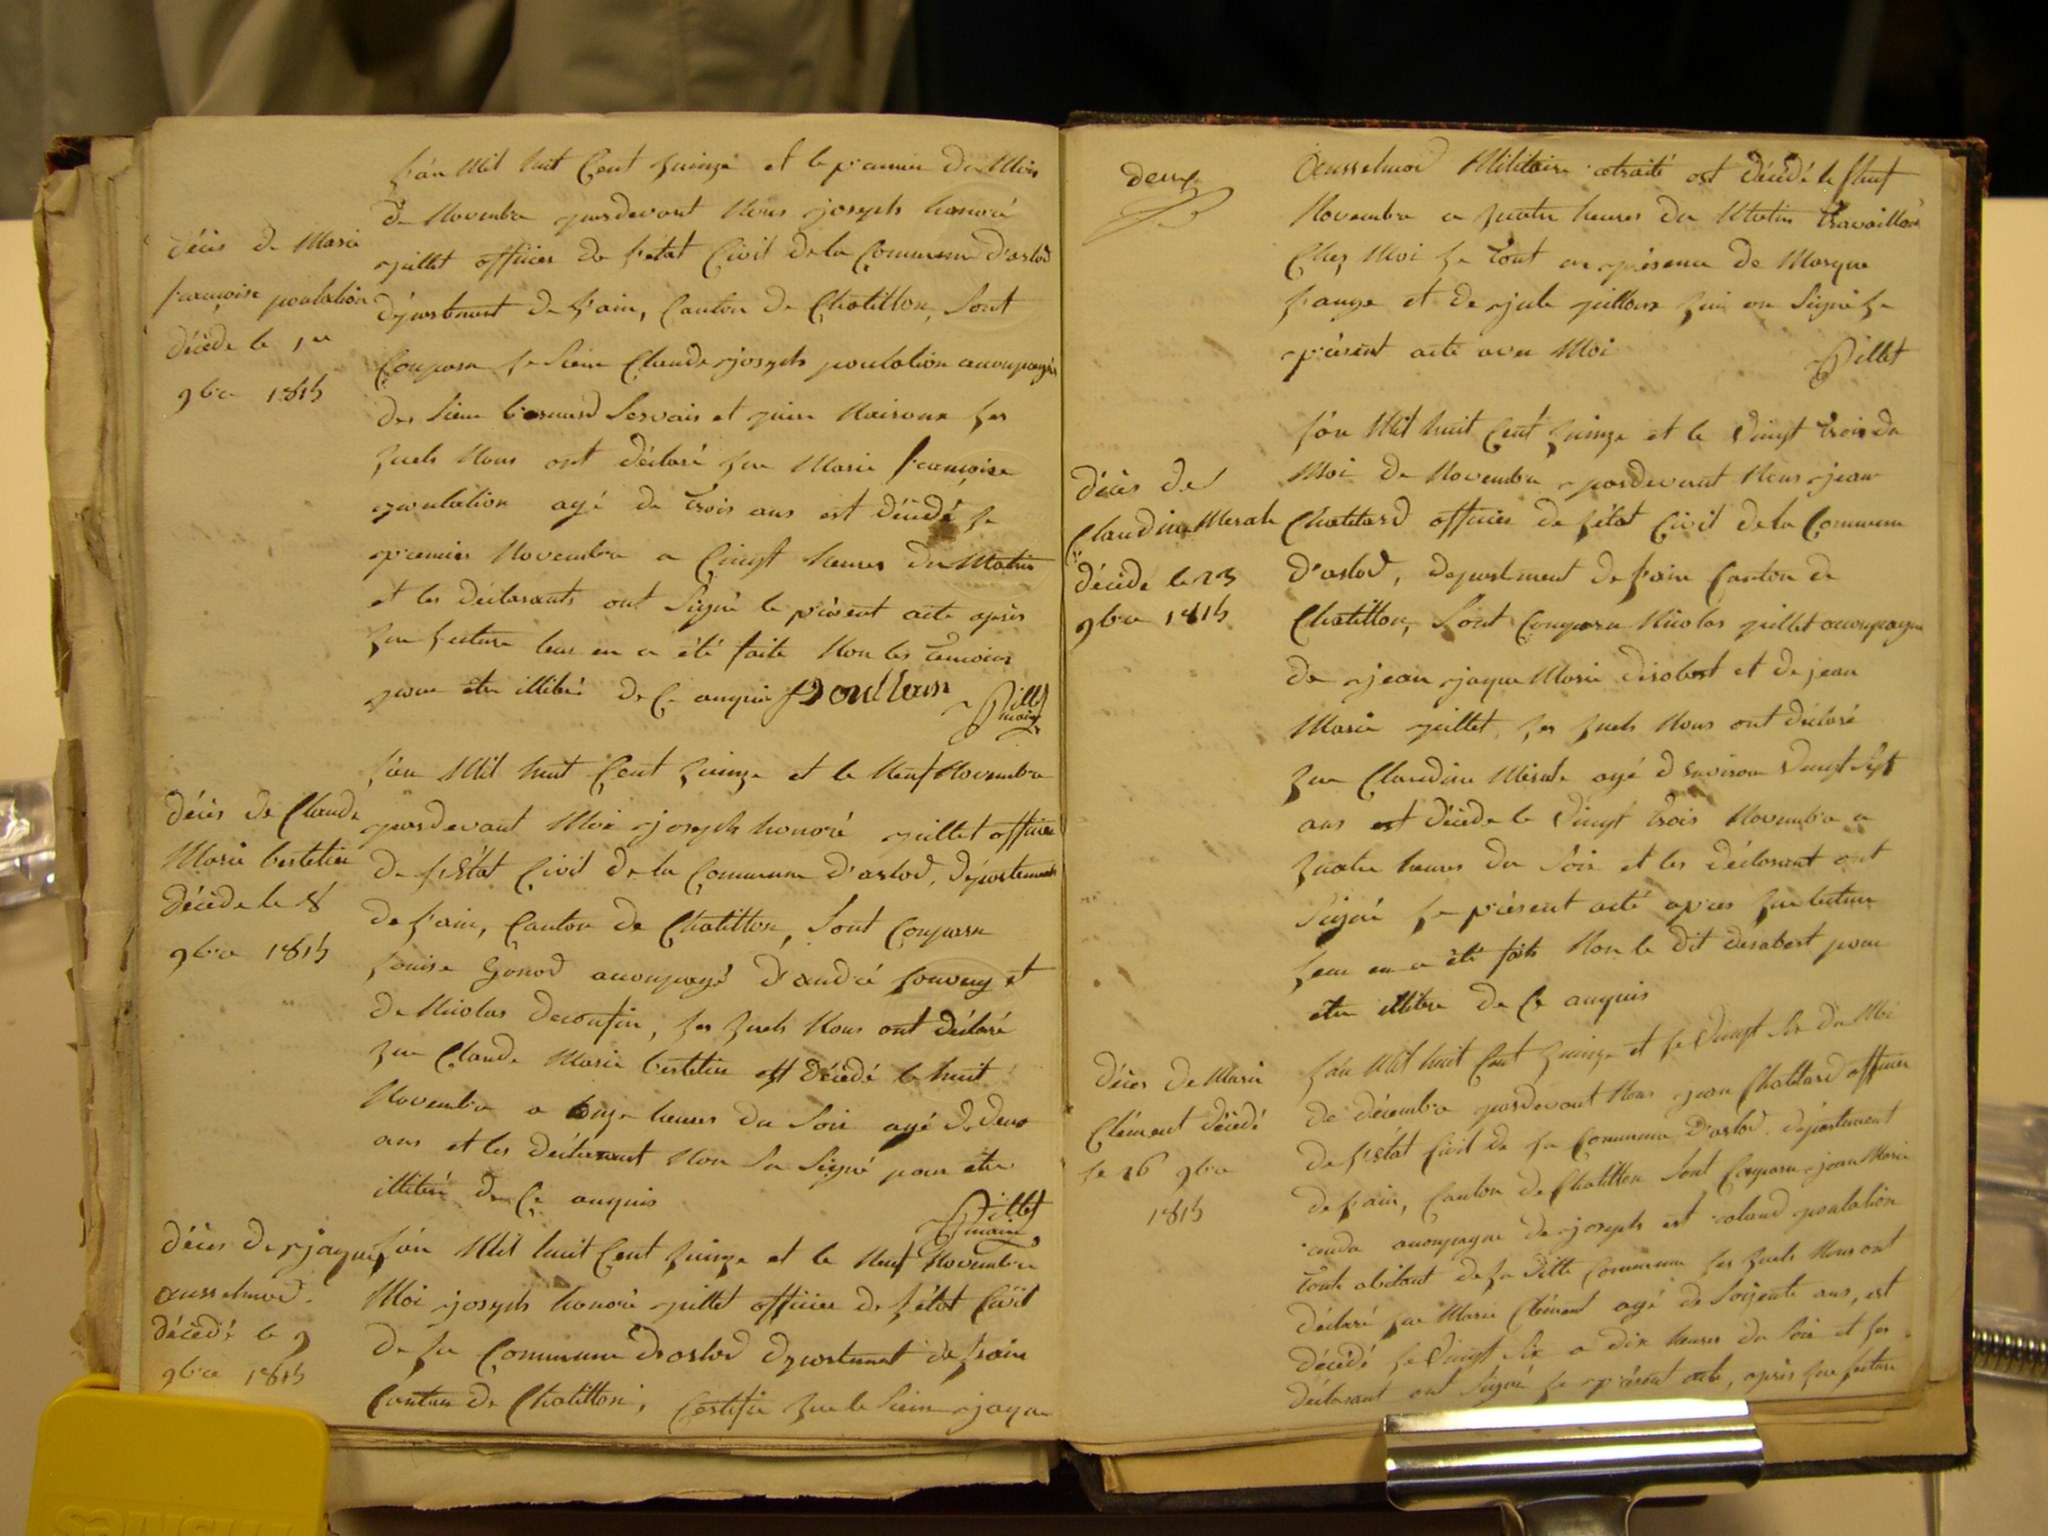 décès de Marie
françoise poulation
décédé le 1er
9bre 1815
L'an Mil huit Cent quinze et le premier du Mois
de Novembre pardevant Nous joseph honoré
pillet officier de l'état Civil de la Commune d'arlod
département de l'ain, Canton de Chatillon, Sont
Comparu le Sieur Claude joseph poulation accompagné
des Sieur bernard Servais et les
quels Nous ont déclaré que Marie francoise
poulation agé de trois ans est décédé le
premier Novembre a Cinqt heures du Matin
et les déclarants ont Signé le présent acte après
que lecture leur en a été faite Non les temoins
pour etre illitéré de Ce anquis Poullain Pillet
maire
décès de Claude
Marie bertetin
décédé le 8
9bre 1815
L'an Mil huit Cent quinze et le Neuf Novembre
pardevant Moi joseph honoré pillet officier
de l'Etat Civil de la Commune d'arlod, département
de l'ain, Canton de Chatillon, Sont Comparu
Louise Gonod acompagé d'andré et
de Nicolas, les quels Nous ont déclaré
que Claude Marie bertetin est décédé le huit
Novembre a onze heures du Soir agé de deux
ans et les déclarant Non Su Signé pour être
illitéré de Ce anquis
Pillet
maire
décès de jaque
ansselmod.
décédé le 9
9bre 1815
L'an Mil huit Cent quinze et le Neuf Novembre
Moi joseph honoré pillet officier de l'état Civil
de la Commune d'arlod département de l'ain
Canton de Chatillon, Certifie que le Sieur jaque
deux
Ansselmod Militaire retraité est décédé le Neuf
Novembre a quatre heures du Matin travaillan
Chez Moi le tout en présence de
et de jule qui on Signé le
présent acte avec Moi
Pillet
décès de
Claudine Merale
décédé le 23
9bre 1815
L'an Mil huit Cent quinze et le Vingt trois du
Moi de Novembre pardevant Nous jean
Chatilard officier de l'état Civil de la Commune
d'arlod, département de l'ain Canton de
Chatillon, Sont Comparu Nicolas pillet acompagn
de jean jaque Marie derobert et de jean
Marie pillet, les quels Nous ont déclaré
que Claudine Merale agé d'Environ Vingt Sept
ans est décédé le Vingt trois Novembre a
quatre heures du Soir et les déclarant ont
Signé le présent acté apres que lecture
leur en a été faite Non le dit derobert pour
etre illitéré de Ce anquis
décès de Marie
Clément décédé
le 26 9bre
1815
L'an Mil huit Cent quinze et le Vingt Six du Moi
de décembre pardevant Nous jean Chatilard officier
de l'état Civil de la Commune d'arlod. département
de l'ain, Canton de Chatillon Sont Comparu jean Marie
acompagné de joseph est roland poulation
tout abitant de la ditte Commune les quels Nous ont
déclaré que Marie Clément agé de Soisente ans, est
décédé le Vingt Six a dix heures du Soir et les
déclarant ont Signé le présent acte, après que lecture